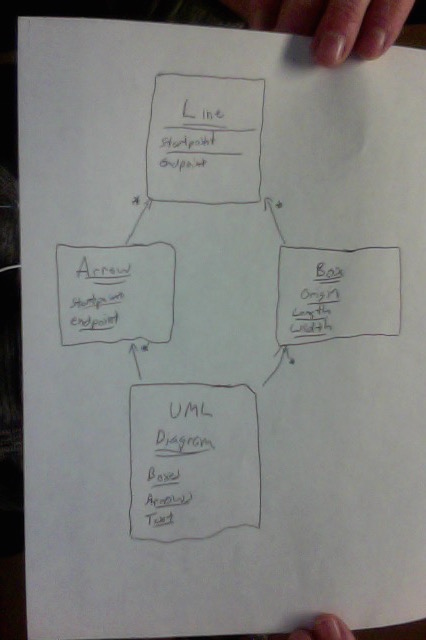 Line
Startpoint
Endpoint
*
*
Arrow
Startpoint
Endpoint
Box
Origin
Length
Width
*
*
UML
Diagram
Boxes
Arrows
Text